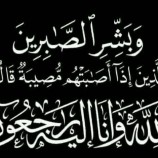 وَبَشِّرِ ٱلصَّـٰبِرِينَ
لَّذِينَ إِذَآ أَصَـٰبَتْهُم مُّصِيبَةٌ قَالُ
لِلَّهِ وَإِنَّآ إِلَيْهِ رَٰجِعُو